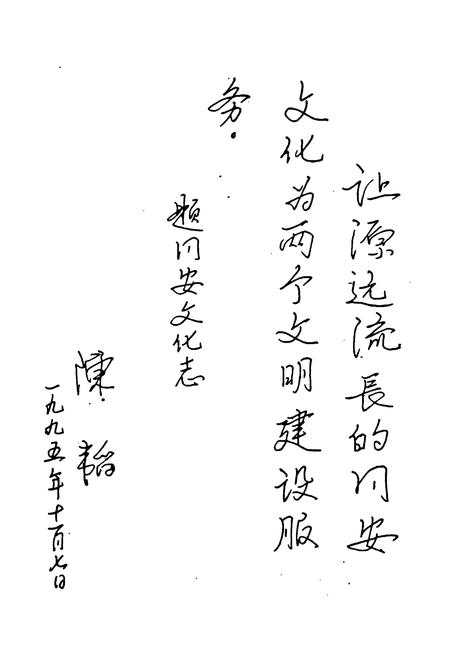 让源远流長的同安
文化为两个文明建设服
务.
题同安文化志
陳韜
一九九五年十一月七日